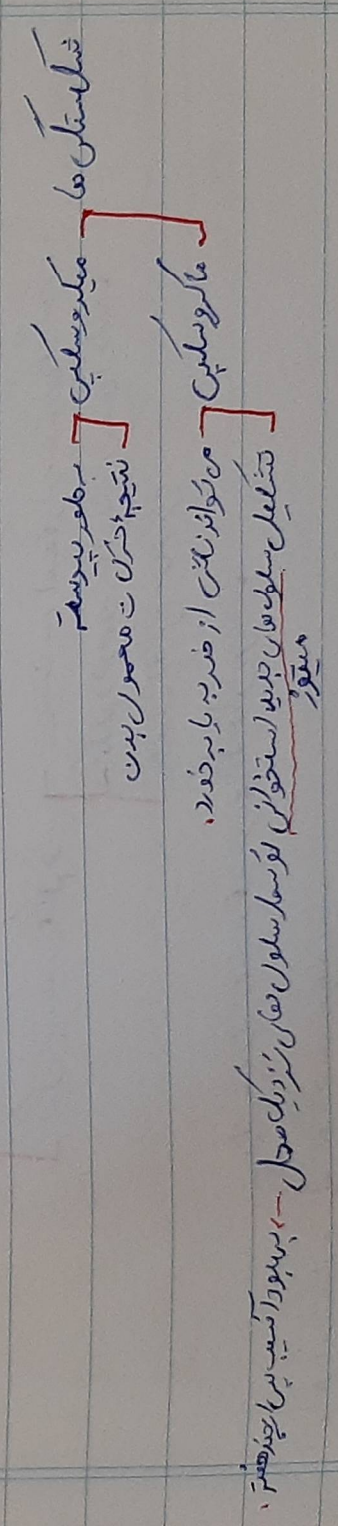 شکستگی ها
میکروسکپی
به طور پیوسته
نتیجۀ حرکات معمول بدن
ماکروسکپی
می تواند ناشی از ضربه یا برخورد.
تشکیل سلول های جدید استخوانی توسط سلول های نزدیک محل → بهبود آسیب پس از چند هفته.
میتوز